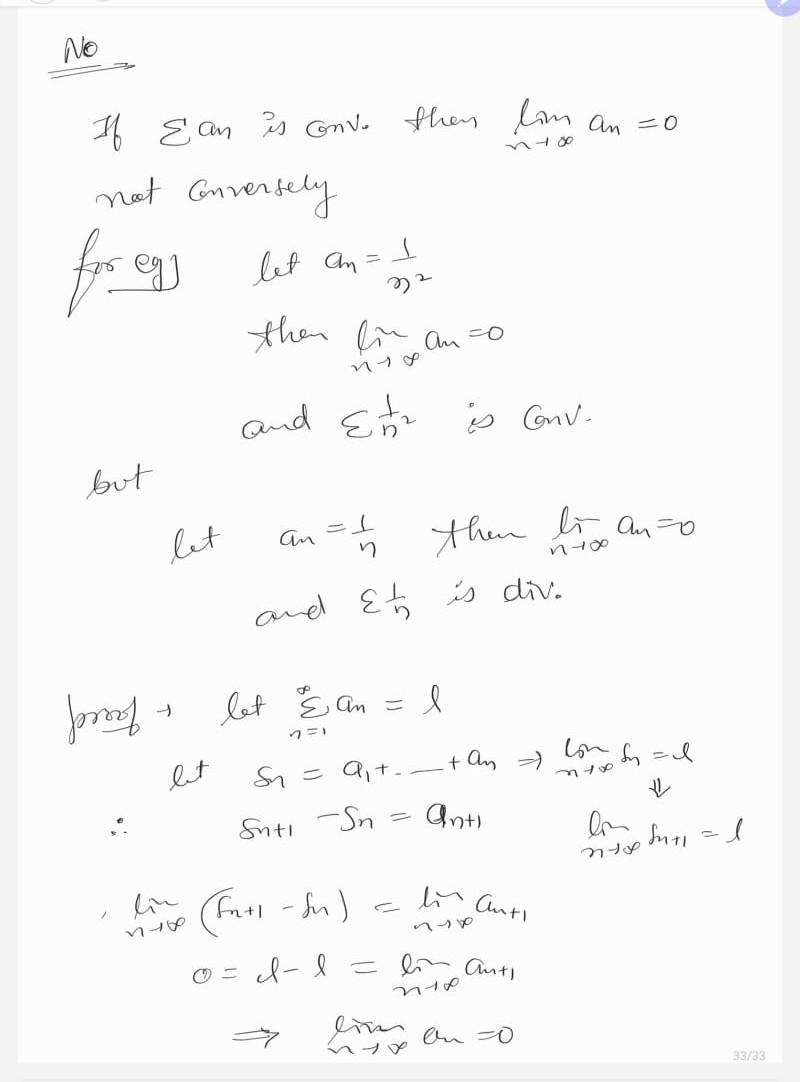 No
If Σ an is conv. then lim n→∞ an = 0
not conversely
for eg) let an = 1/n²
then lim n→∞ an = 0
and Σ 1/n² is conv.
but
let an = 1/n then lim n→∞ an = 0
and Σ 1/n is div.
proof → let ∞ Σ n=1 an = l
let Sn = a1 + - — + an ⇒ lim n→∞ Sn = l
⇓
∴ Sn+1 - Sn = an+1 lim n→∞ Sn+1 = l
, lim n→∞ (Sn+1 - Sn) = lim n→∞ an+1
0 = l - l = lim n→∞ an+1
⇒ lim n→∞ an = 0
33/33